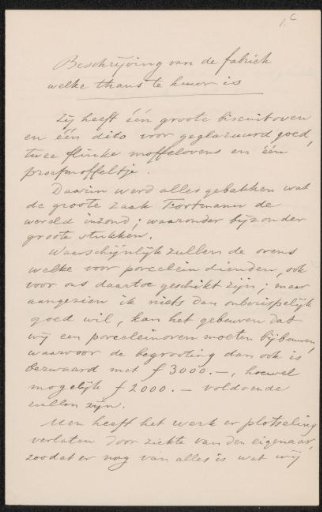 1c
Beschrijving van de fabriek
welke thans te huur is
Zij heeft één groote biscuitoven
en één dito voor geglazuurd goed,
twee flinke moffelovens en één
proefmoffeltje.
Daarin werd alles gebakken wat
de groote zaak de
wereld inzond; waaronder bijzonder
groote stukken.
Waarschijnlijk zullen de ovens
welke voor porcelein dienden, ook
voor ons daartoe geschikt zijn; maar
aangezien ik niets dan onberispelijk
goed wil, kan het gebeuren dat
wij een porceleinoven moeten bijbouwen,
waarvoor de begrooting dan ook is
bezwaard met f 3000.—, hoewel
mogelijk f 2000.— voldoende
zullen zijn.
Men heeft het werk er plotseling
verlaten door ziekte van den eigenaar,
zoodat er nog van alles is wat wij